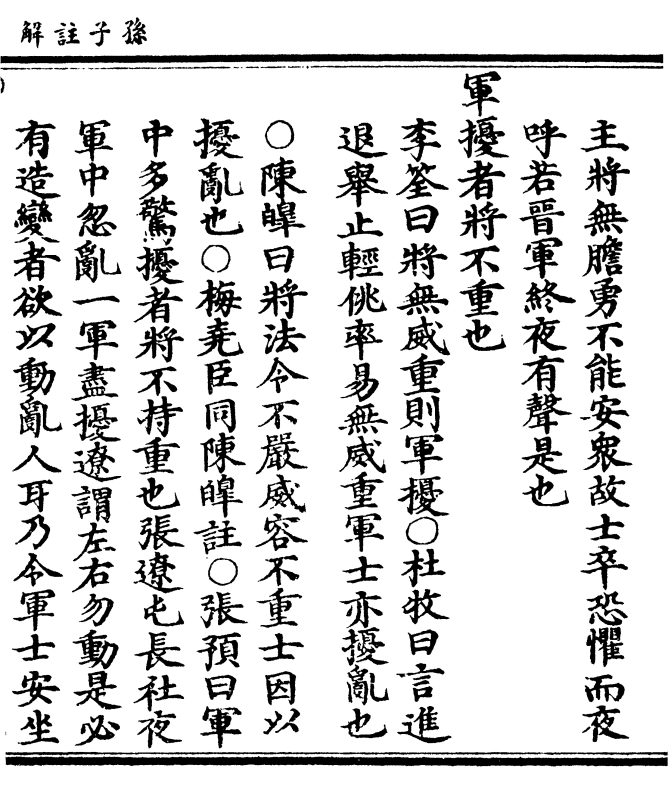 孫子註解
主將無膽勇不能安衆故士卒恐懼而夜
呼若晉軍終夜有聲是也
軍擾者將不重也
李筌曰將無威重則軍擾〇杜牧曰言進
退舉止輕佻率易無威重軍士亦擾亂也
〇陳皥曰將法令不嚴威容不重士因以
擾亂也〇梅堯臣同陳皥註〇張預曰軍
中多驚擾者將不持重也張遼屯長社夜
軍中忽亂一軍盡擾遼謂左右勿動是必
有造變者欲以動亂人耳乃令軍士安坐